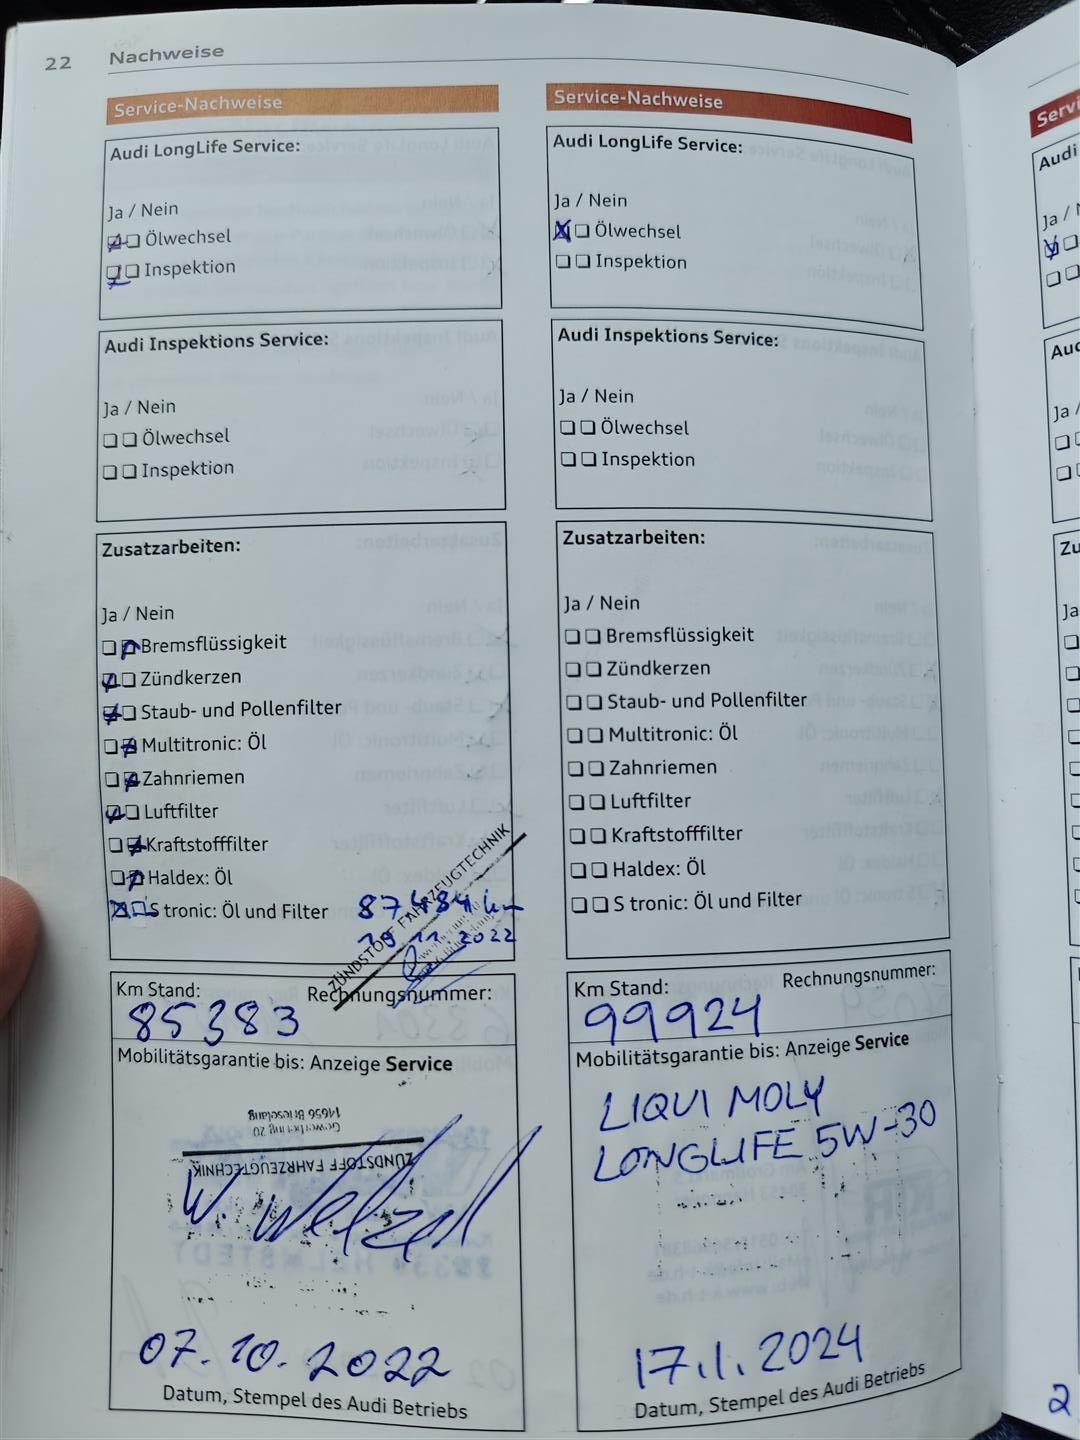 22 Nachweise
Service-Nachweise
Audi LongLife Service:
Ja / Nein
Ölwechsel
Inspektion
Audi Inspektions Service:
Ja / Nein
Ölwechsel
Inspektion
Zusatzarbeiten:
Ja / Nein
Bremsflüssigkeit
Zündkerzen
Staub- und Pollenfilter
Multitronic: Öl
Zahnriemen
Luftfilter
Kraftstofffilter
Haldex: Öl
S tronic: Öl und Filter
87484 km
11.2022
ZÜNDSTOFF FAHRZEUGTECHNIK
Km Stand: Rechnungsnummer:
85383
Mobilitätsgarantie bis: Anzeige Service
ZÜNDSTOFF FAHRZEUGTECHNIK
Gewerbering 20
14656 Brieselang
07.10.2022
Datum, Stempel des Audi Betriebs
Service-Nachweise
Audi LongLife Service:
Ja / Nein
Ölwechsel
Inspektion
Audi Inspektions Service:
Ja / Nein
Ölwechsel
Inspektion
Zusatzarbeiten:
Ja / Nein
Bremsflüssigkeit
Zündkerzen
Staub- und Pollenfilter
Multitronic: Öl
Zahnriemen
Luftfilter
Kraftstofffilter
Haldex: Öl
S tronic: Öl und Filter
Km Stand: Rechnungsnummer:
99924
Mobilitätsgarantie bis: Anzeige Service
LIQUI MOLY
LONGLIFE 5W-30
17.1.2024
Datum, Stempel des Audi Betriebs
Servi
Audi
Ja /
Ja /
Zu
Ja
2